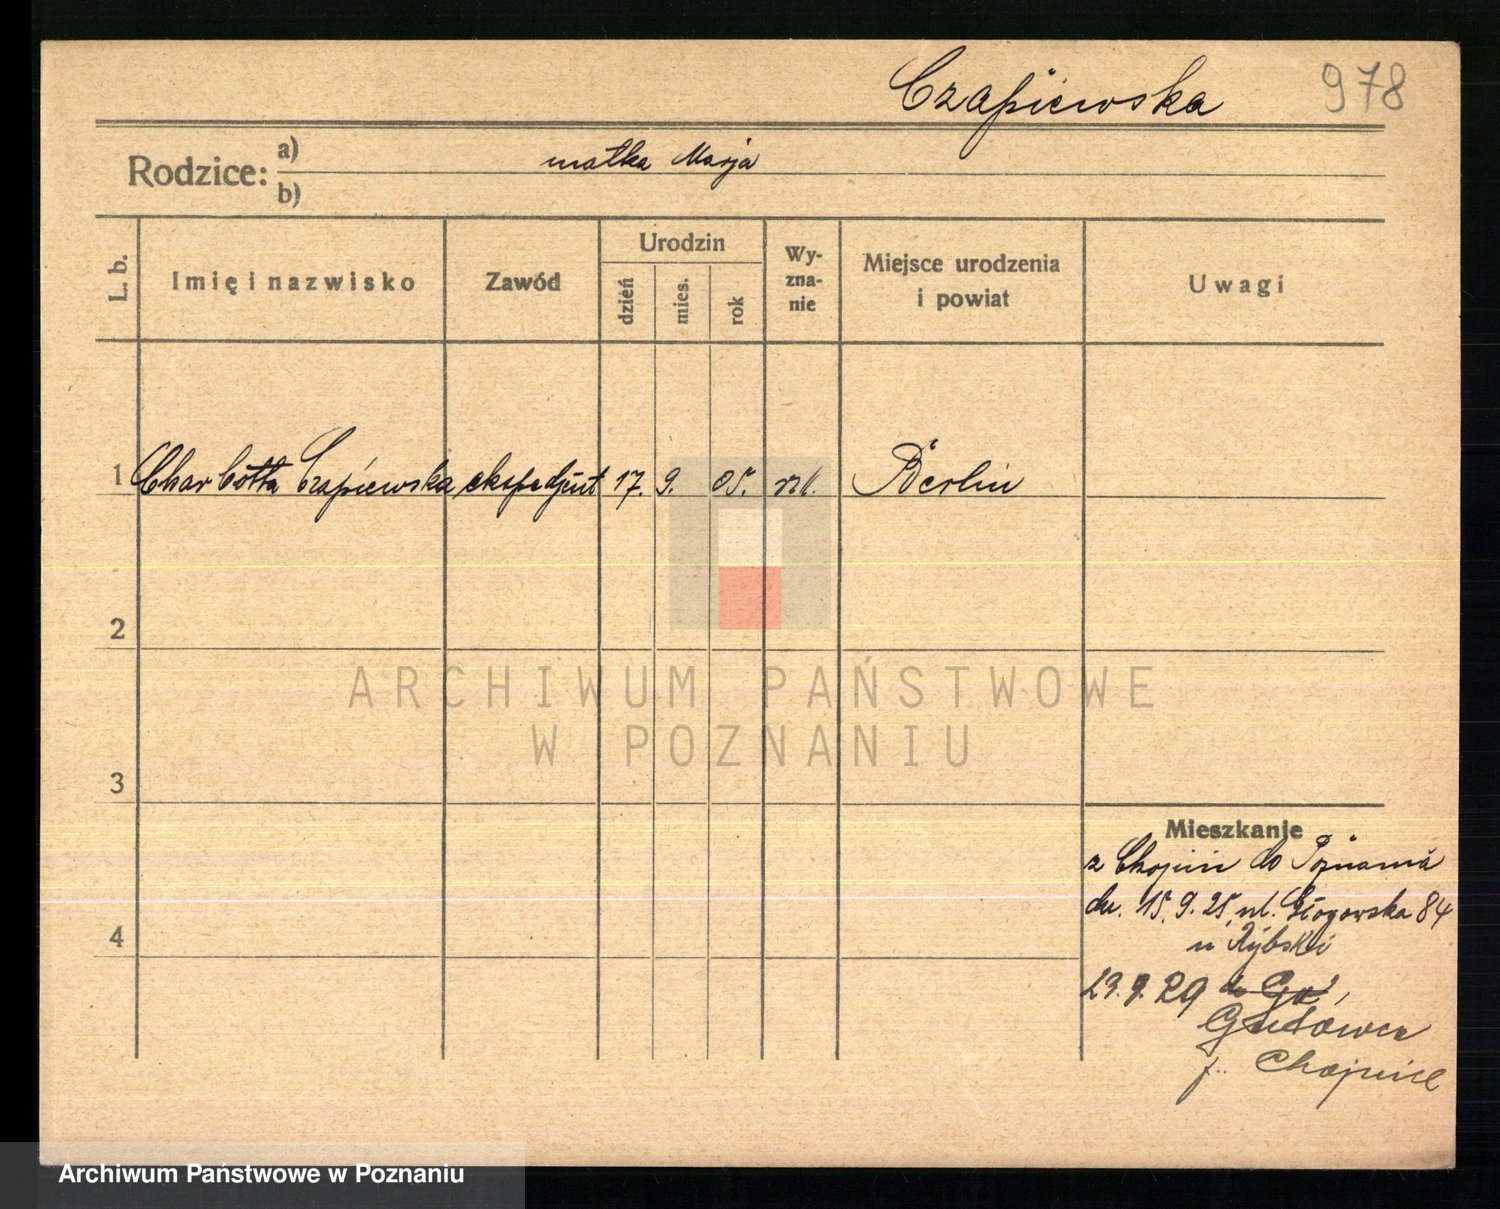 Czapiewska 978
Rodzice: a) matka Marja
b)
L. b. Imię i nazwisko Zawód Urodzin dzień mies. rok Wyznanie Miejsce urodzenia i powiat Uwagi
1 Charlotta Czapiewska ekspedjent 17. 9. 05. rzk. Berlin
2
ARCHIWUM PAŃSTWOWE
W POZNANIU
3
Mieszkanie
z Chojnic do Poznania
dn. 15.9.25 ul. Głogowska 84
u Rybski
4
29.9.29 do
Gutowca
p. Chojnice
Archiwum Państwowe w Poznaniu